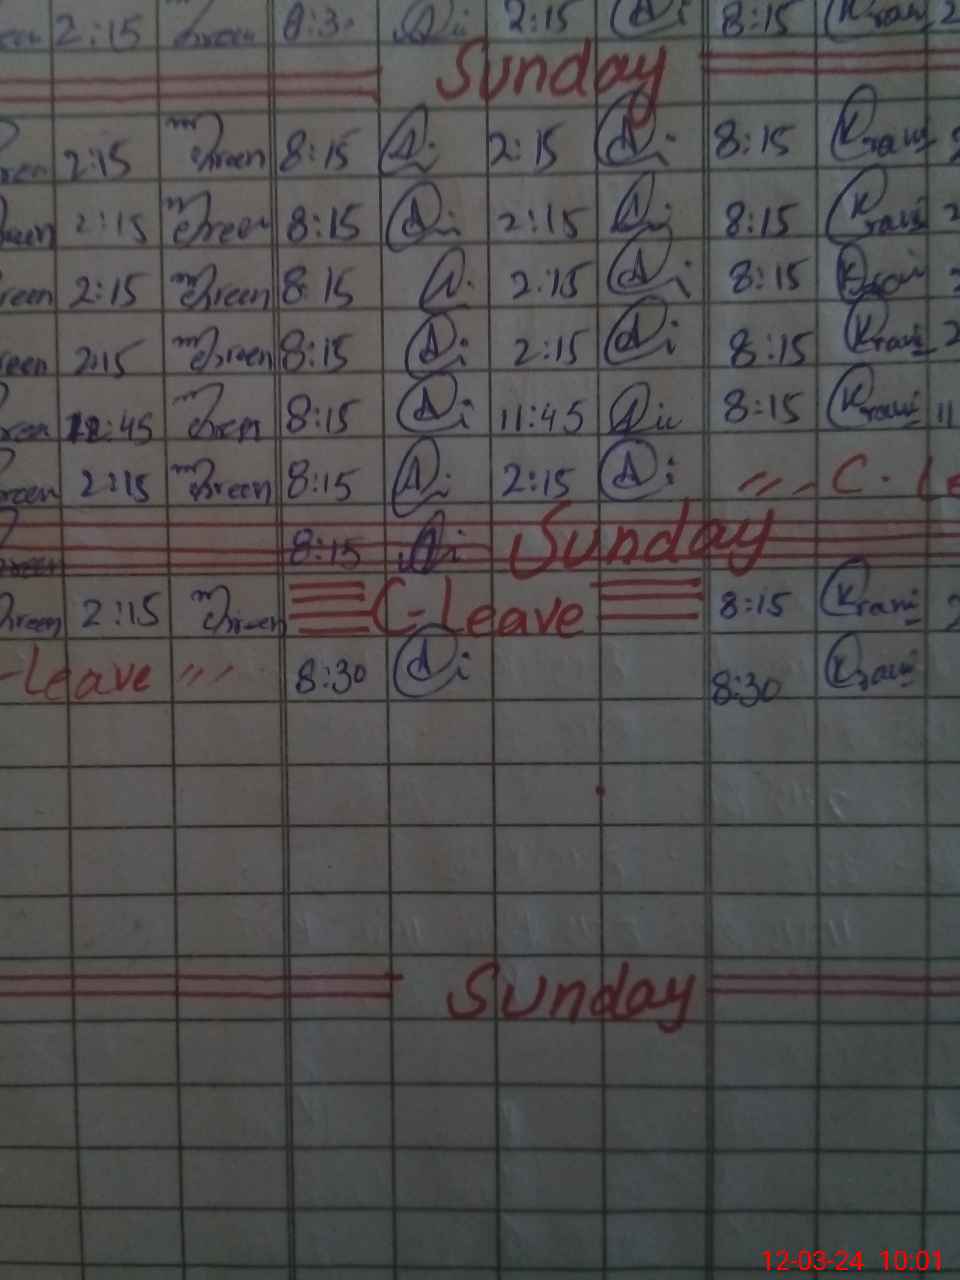 2:15 Green 8:30 Ai 2:15 Ai 8:15 Krani 2
Sunday
2:15 Green 8:15 Ai 2:15 Ai 8:15 Krani
2:15 Green 8:15 Ai 2:15 Ai 8:15 Krani 2
reen 2:15 Green 8:15 A. 2:15 Ai 8:15 Krani 2
reen 2:15 Green 8:15 Ai 2:15 Ai 8:15 Krani 2
reen 12:45 Green 8:15 Ai 11:45 Ai 8:15 Krani 11
reen 2:15 Green 8:15 Ai 2:15 Ai C. Le
8:15 Ai Sunday
Green 2:15 Green C-Leave 8:15 Krani 2
-Leave 8:30 Ai 8:30 Krani
Sunday
12-03-24 10:01